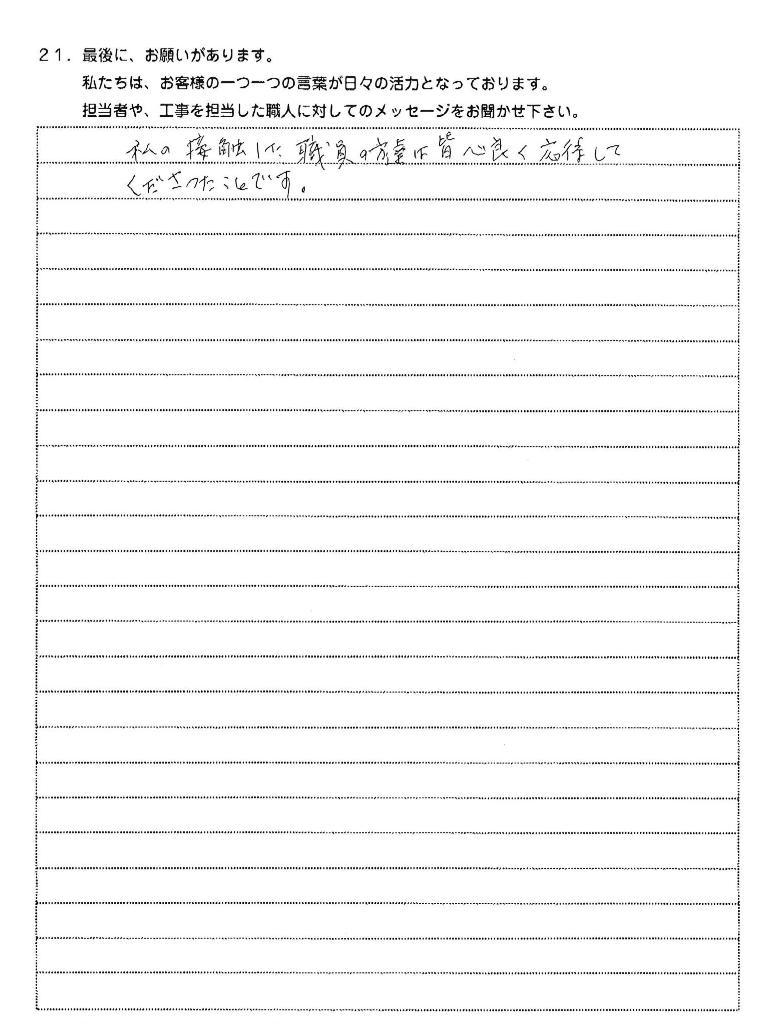 21. 最後に、お願いがあります。
私たちは、お客様の一つ一つの言葉が日々の活力となっております。
担当者や、工事を担当した職人に対してのメッセージをお聞かせ下さい。
私の接触した職員の方達は皆心良く応待して
くださつたことです。